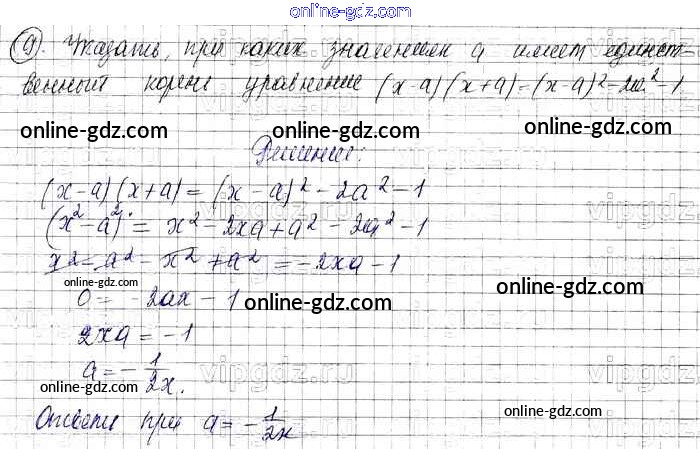 online-gdz.com
9). Указать, при каких значениях а имеет единст-
венный корень уравнение (x-a)(x+a)=(x-a)²-2a²-1
online-gdz.com online-gdz.com online-gdz.com
Решение:
(x-a)(x+a) = (x-a)² - 2a² - 1
vipgdz.ru
(x²-a²) = x² - 2xa + a² - 2a² - 1
x² - a² - x² + a² = -2xa - 1
online-gdz.com online-gdz.com
0 = -2ax - 1
online-gdz.com online-gdz.com
2xa = -1
a = -1/2x.
vipgdz.ru
online-gdz.com online-gdz.com online-gdz.com
Ответ: при a = -1/2x
online-gdz.com